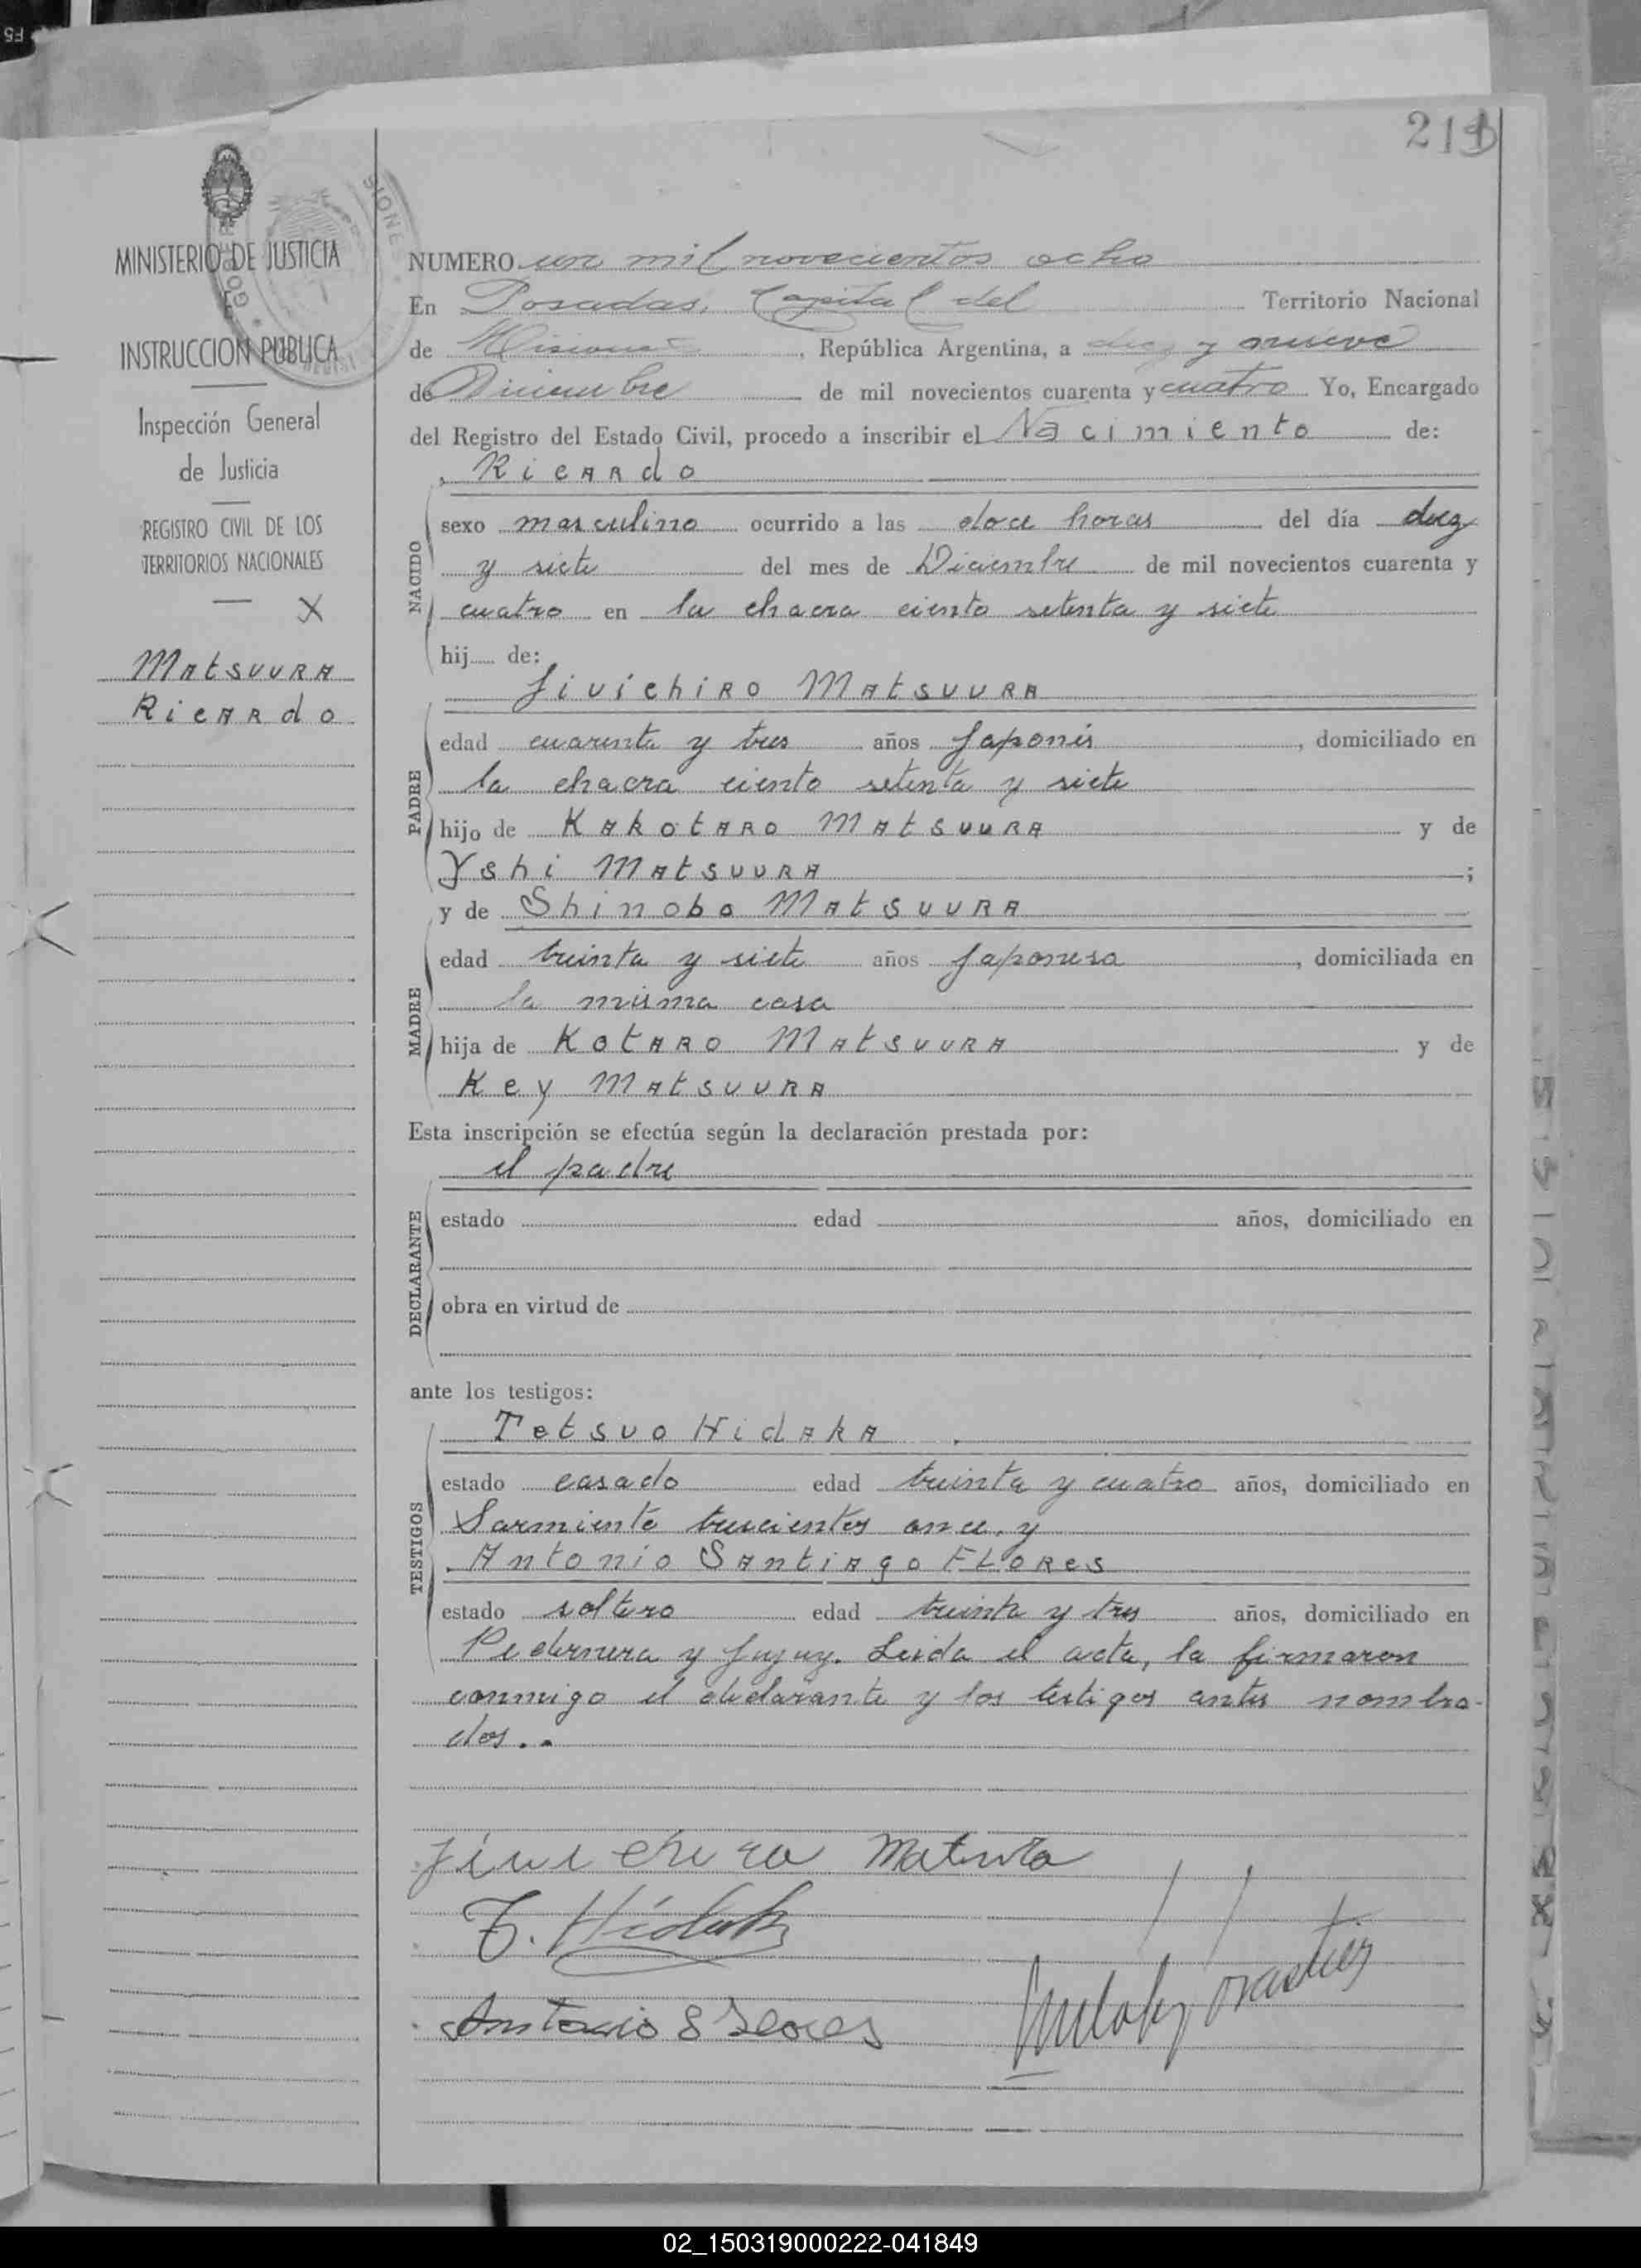 MINISTERIO DE JUSTICIA
E
INSTRUCCION PUBLICA
Inspección General
de Justicia
REGISTRO CIVIL DE LOS
TERRITORIOS NACIONALES
X
Matsuura
Ricardo
NUMERO un mil novecientos ocho
En Posadas, Capital del Territorio Nacional
de Misiones, República Argentina, a diez y nueve
de Diciembre de mil novecientos cuarenta y cuatro Yo, Encargado
del Registro del Estado Civil, procedo a inscribir el Nacimiento de:
Ricardo
NACIDO
sexo masculino ocurrido a las doce horas del día diez
y siete del mes de Diciembre de mil novecientos cuarenta y
cuatro en la chacra ciento setenta y siete
hij de:
Jiuichiro Matsuura
PADRE
edad cuarenta y tres años Japonés, domiciliado en
la chacra ciento setenta y siete
hijo de Kakotaro Matsuura y de
Yshi Matsuura;
y de Shinobo Matsuura
MADRE
edad treinta y siete años Japonesa, domiciliada en
la misma casa
hija de Kotaro Matsuura y de
Key Matsuura
Esta inscripción se efectúa según la declaración prestada por:
el padre
DECLARANTE
estado edad años, domiciliado en
obra en virtud de
ante los testigos:
Tetsuo Hidaka
TESTIGOS
estado casado edad treinta y cuatro años, domiciliado en
Sarmiento trescientos once, y
Antonio Santiago Flores
estado soltero edad treinta y tres años, domiciliado en
Pedernera y Jujuy. Leida el acta, la firmaron
conmigo el declarante y los testigos antes nombra-
dos..
Jiuichiro Matsura
T. Hidaka
Antonio S Flores
02_150319000222-041849